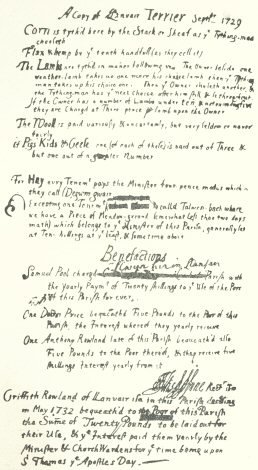 A Copy of Lanvair Terrier Sept. 1729
Corn is tythd here by the Stack or Sheaf as ye Tything-man
chooseth
Flax & hemp by ye tenth handfull (as they call it)
The Lambs are tythd in maner following viz. The Owner
weather lamb takes no one more his choise lamb then ye Tything
man takes up his choice one. Then ye Owner chuseth another, &
the Tythingman hay ye next choice after him & so throughout.
If the Owner has a number of Lambs under ten
they are Changd at Three pence p lamb upon the Owner
The Wooll is paid variously & uncertainly, but very seldom or never
fairly
If Pigs Kids & Geese one (of each of these) is nand out of Three &
but one out of a greater Number
For Hay every Tenemt pays the Minister four pence modus which
they call Degwm gwair
(Excepting one Tenemt so calld Talwrn-bach where
we have a Piece of Meadow-ground (somewhat less that two days
math) which belongs to ye Minister of this Parish, generally lets
at Ten shillings at ye least, & sometime above
Benefactions
Samuel Pool chargd Parish with
the yearly Paymt of Twenty shillings to ye Use of the Poor
of this Parish for ever.
One Poor bequeathd Five Pounds to the Poor of this
Parish, the Interest whereof they yearly receive
One Anthony Rowland late of this Parish bequeathd allso
Five Pounds to the Poor thereof, & they receive five
shillings Interest yearly from it
Griffith Rowland of Lanvair in this Parish
in May 1732 bequeathd to the Poor of this Parish
the Sume of Twenty Pounds to be laid out for
their Use, & ye Interest paid them yearly by the
Minister & Church Wardens for ye time being upon
St Thomas ye Apostles Day.